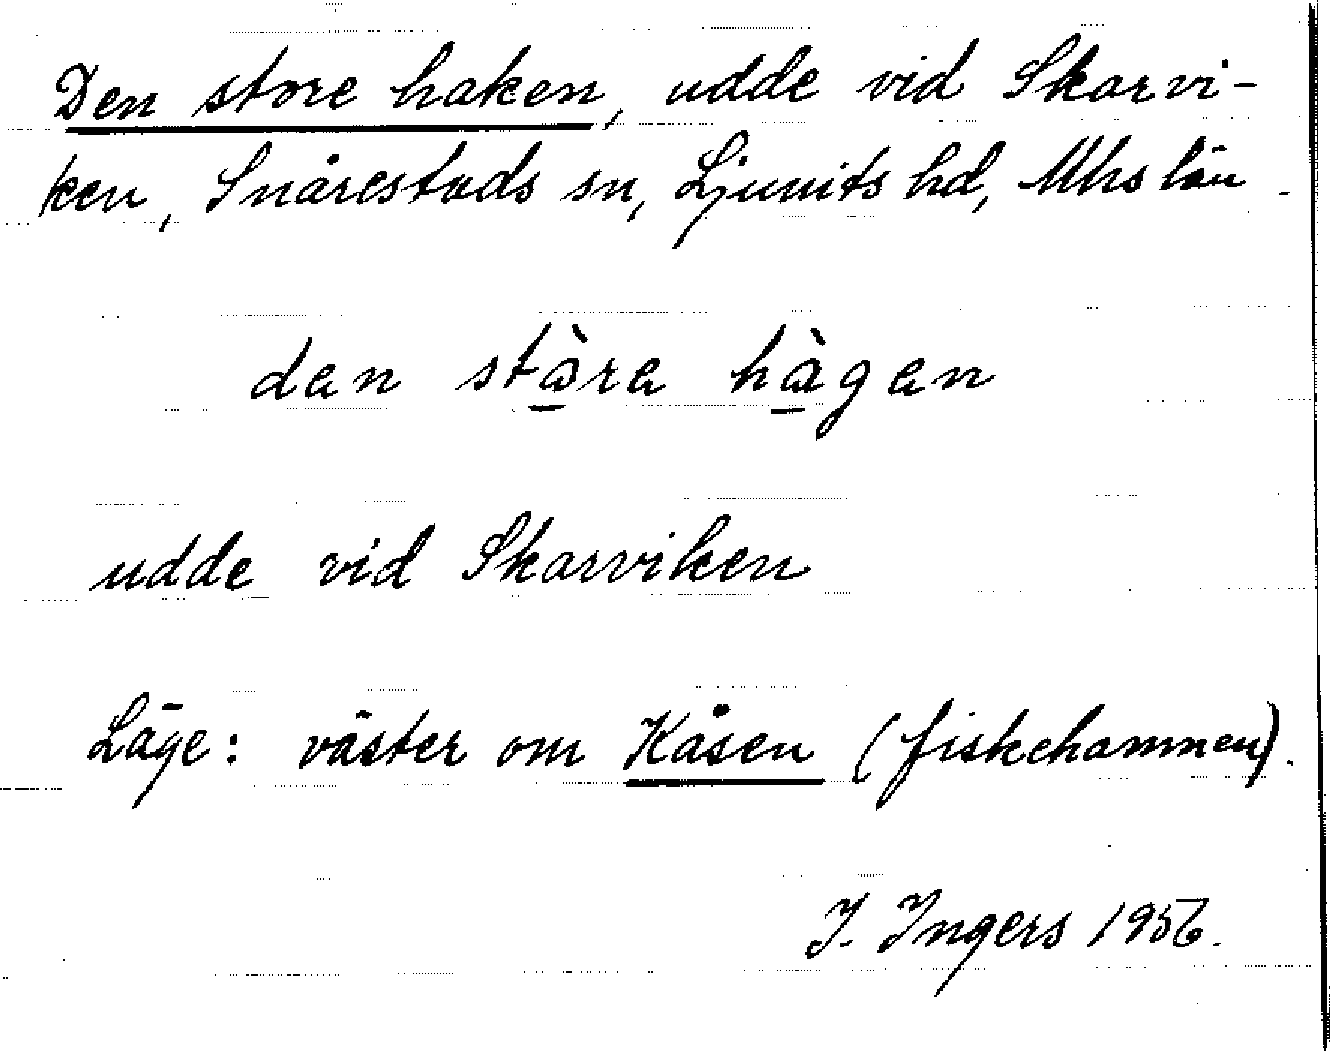 Den store haken, udde vid Skarvi-
ken, Snårestads sn, Ljunits hd, Mhs län.
dan stàra hàgan
udde vid Skarviken
Läge: väster om Kåsen (fiskehamnen).
I. Ingers 1956.